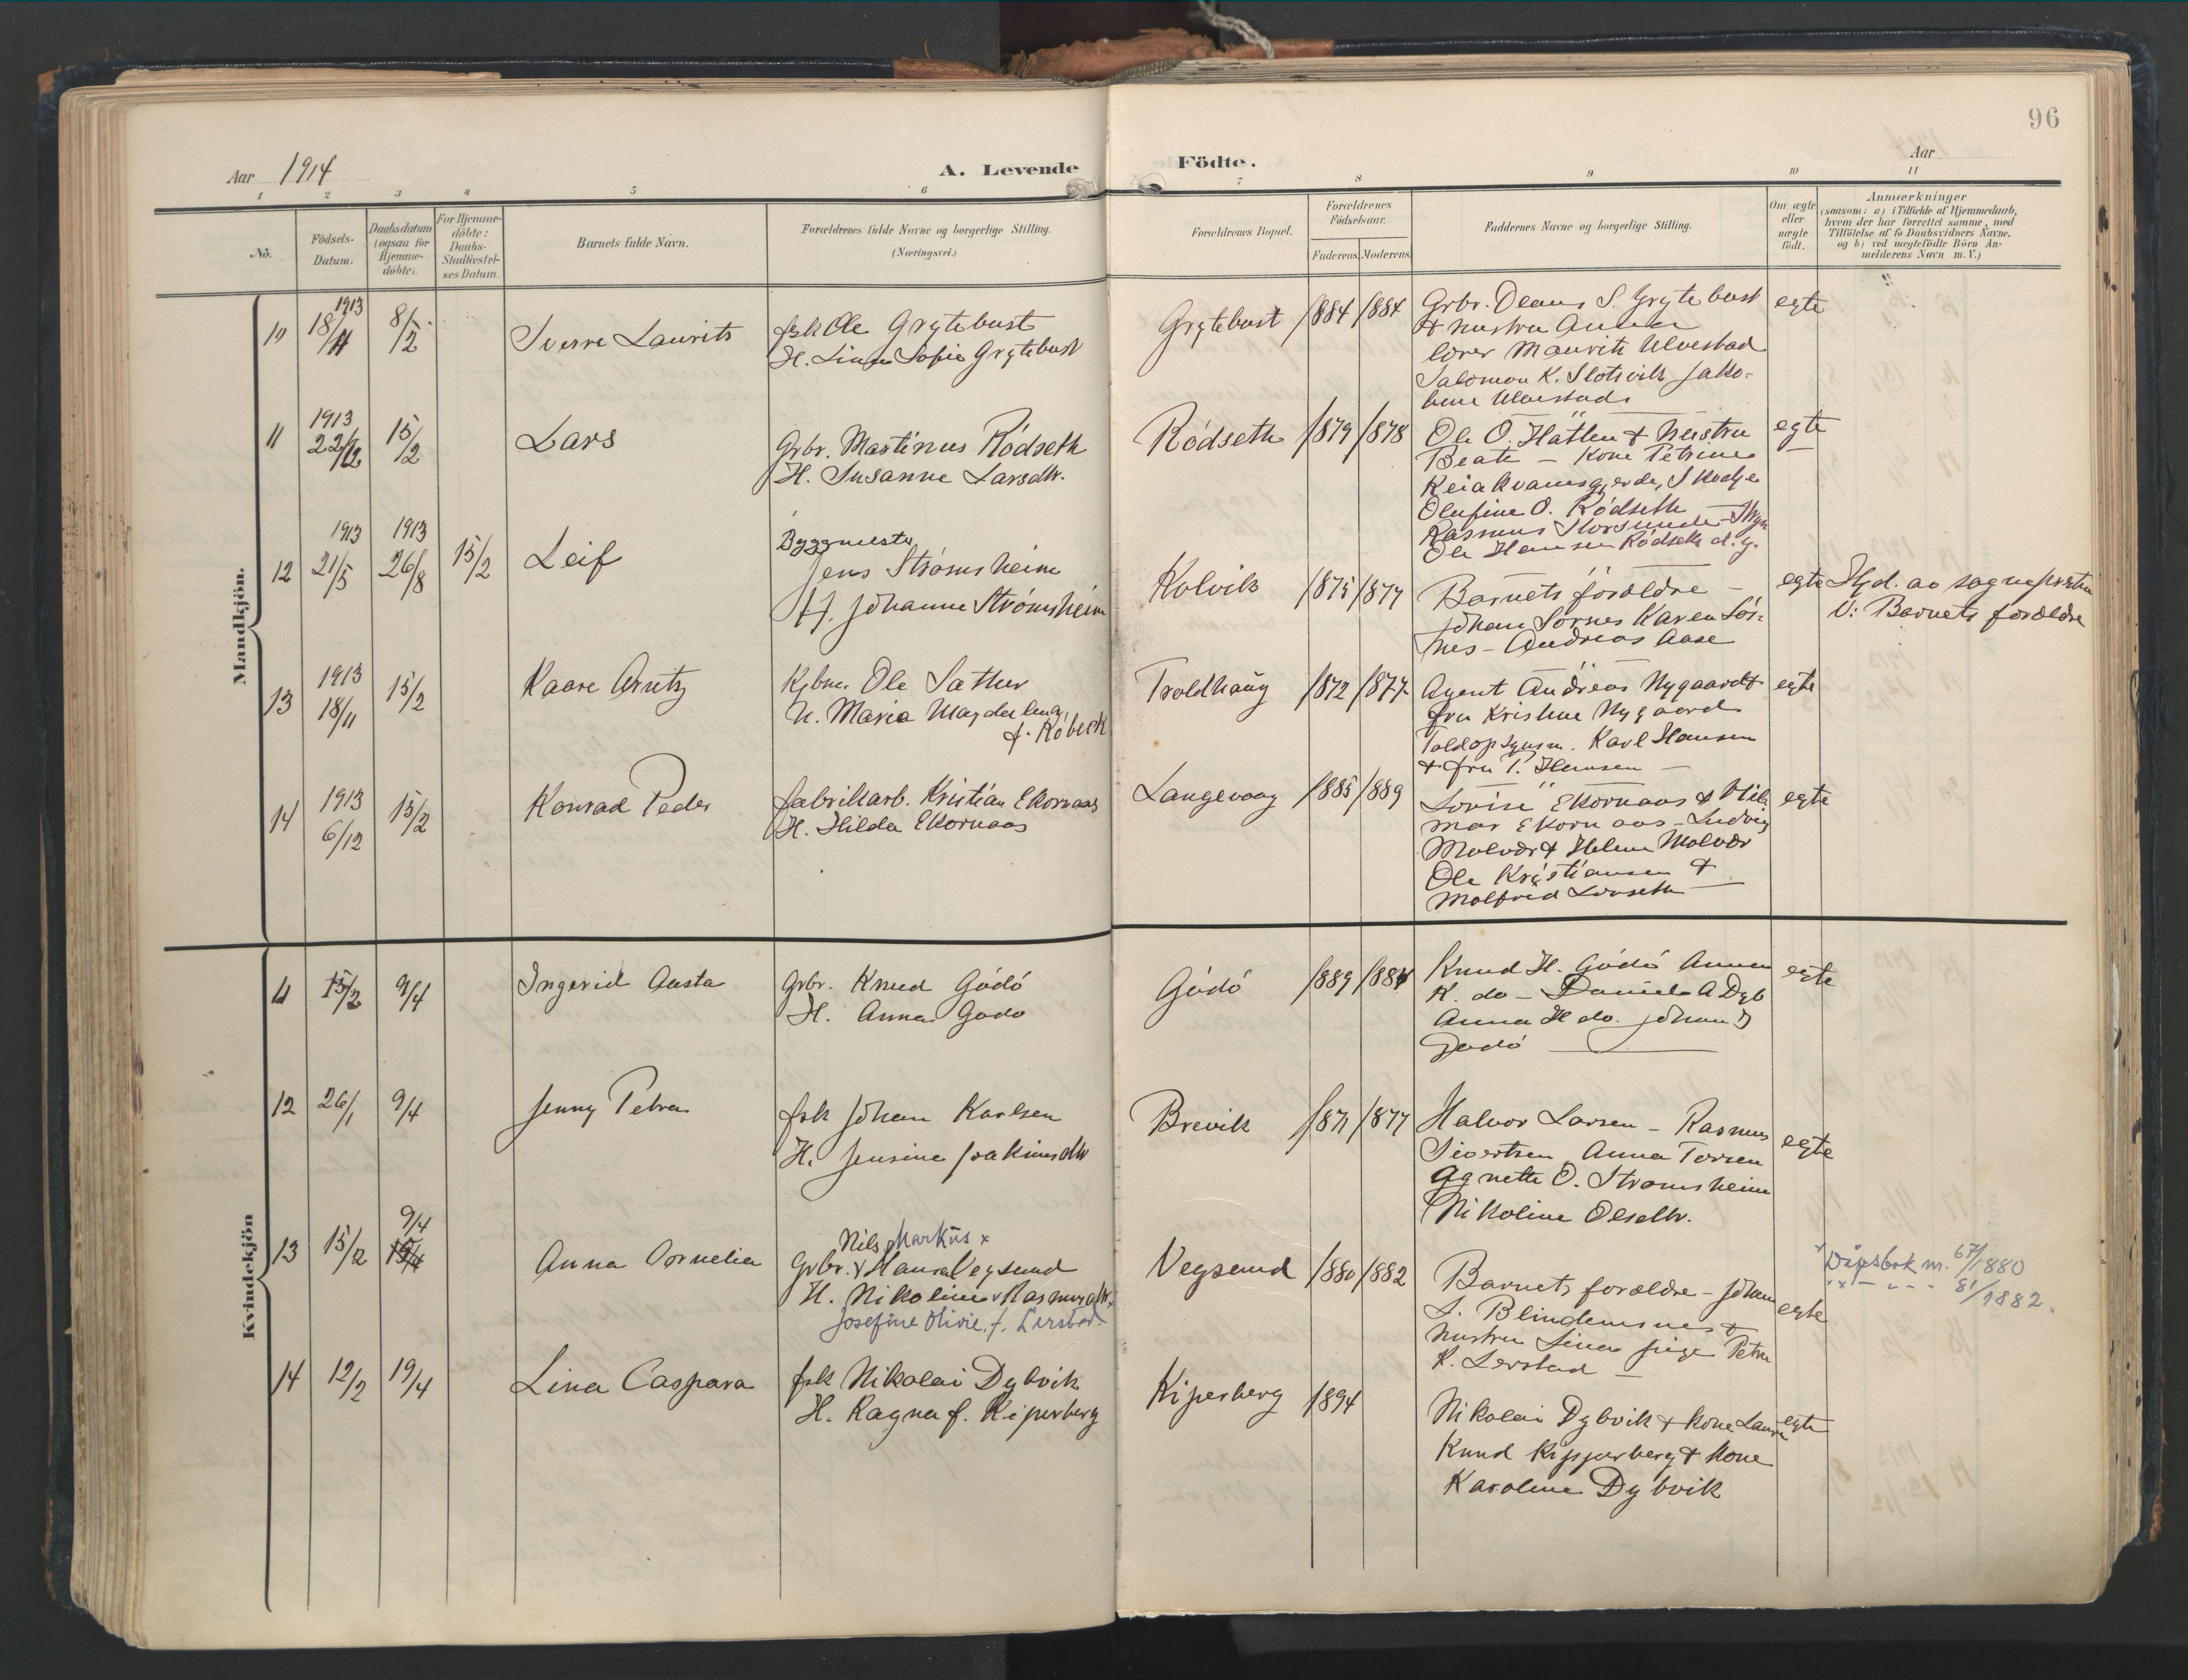 96
Aar 1914
A. Levende
Födte.
Aar
1 2 3 4 5 6 7 8 9 10 11
No.
Födsels-Datum.
Daabsdatum (ogsaa for Hjemme-döbte).
For Hjemme-döbte: Daabs-Stadfæstel-ses Datum.
Barnets fulde Navn.
Forældrenes fulde Navne og borgerlige Stilling.
(Næringsvei.)
Forældrenes Bopæl.
Forældrenes Födselsaar.
Faderens. Moderens.
Faddernes Navne og borgerlige Stilling.
Om ægte eller uægte födt.
Anmærkninger
(saasom: a) i Tilfælde af Hjemmedaab,
hvem der har forrettet samme, med
Tilföielse af to Daabsvidners Navne.
og b) ved uægtefödte Börn An-
melderens Navn m. V.)
Mandkjön.
10 1913 18/11 8/2 Sverre Laurits
fsk Ole Grytebust
H. Lina Sofie Grytebust
Grytebust 1884 1884
Grbr. Deans S. Grytebust
& hustru Anna
lærer Mauritz Ulvestad
Salomon K. Slotsvik Jako-
bine Ulvestad
egte
11 1913 22/12 15/2 Lars
Grbr. Martinus Rödseth
H. Susanne Larsdtr.
Rödseth 1879 1878
Ole O. Hatlen & Hustru
Beate – Kone Petrine
Reiakvamsgjerde, Skodje
Olufine O. Rödseth
Rasmus
Ole Hansen Rödseth d. y.
egte
12 1913 21/5 1913 26/8 15/2 Leif
Byggmester
Jens Strömsheim
H. Johanne Strömsheim
Kolvik 1875 1877
Barnets foreldre –
Johan Sörnes Karen Sör-
nes – Andreas Aase
egte
Hjd. av sogneprsten
V: Barnets foreldre
13 1913 18/11 15/2 Kaare Arntz
Kjbm. Ole Sæther
H. Maria Magdalena
f. Röbeck
Troldhaug 1872 1877
Agent Andreas Nygaard &
fru Kristine Nygaard
Toldopsynsm. Karl Hansen
& fru T. Hansen –
egte
14 1913 6/12 15/2 Konrad Peder
fabrikarb. Kristian Ekornaas
H. Hilda Ekornaas
Langevaag 1885 1889
Lovise Ekornaas & Hil-
mar Ekornaas – Ludvig
Molvær & Helene Molvær
Ole Kristiansen &
Molfrid
egte
Kvindekjön
11 15/2 9/4 Ingerid Aasta
Grbr. Knud Gödö
H. Anna Gödö
Gödö 1889 1884
Knud H. Gödö Anna
K. do – Daniel A Dyb
Anna H do. Johan
Gödö
egte
12 26/1 9/4 Jenny Petra
fsk Johan Karlsen
H. Jensine Joakimsdtr
Brevik 1871 1877
Halvor Larsen – Rasmus
Sivertsen Anna Torsen
Agnette O. Strömsheim
Nikoline Olsdtr.
egte
13 15/2 9/4 Anna Cornelia
Nils Markus x
Grbr. Hans Vegsund
H. Nikoline Rasmusdtr.
Josefine Olivie, f. Lerstad
Vegsund 1880 1882
Barnets foreldre – Johan
S. Blindemsnes &
hustru Lina pige Petra
K. Lerstad –
egte
x Dåpsbok nr. 67/1880
" x " – " – 81/1882.
14 12/2 19/4 Lina Caspara
fsk Nikolai Dybvik
H. Ragna f. Kiperberg
Kiperberg 1894
Nikolai Dybvik & kone Laura
Knud Kipperberg & kone
Karoline Dybvik
egte